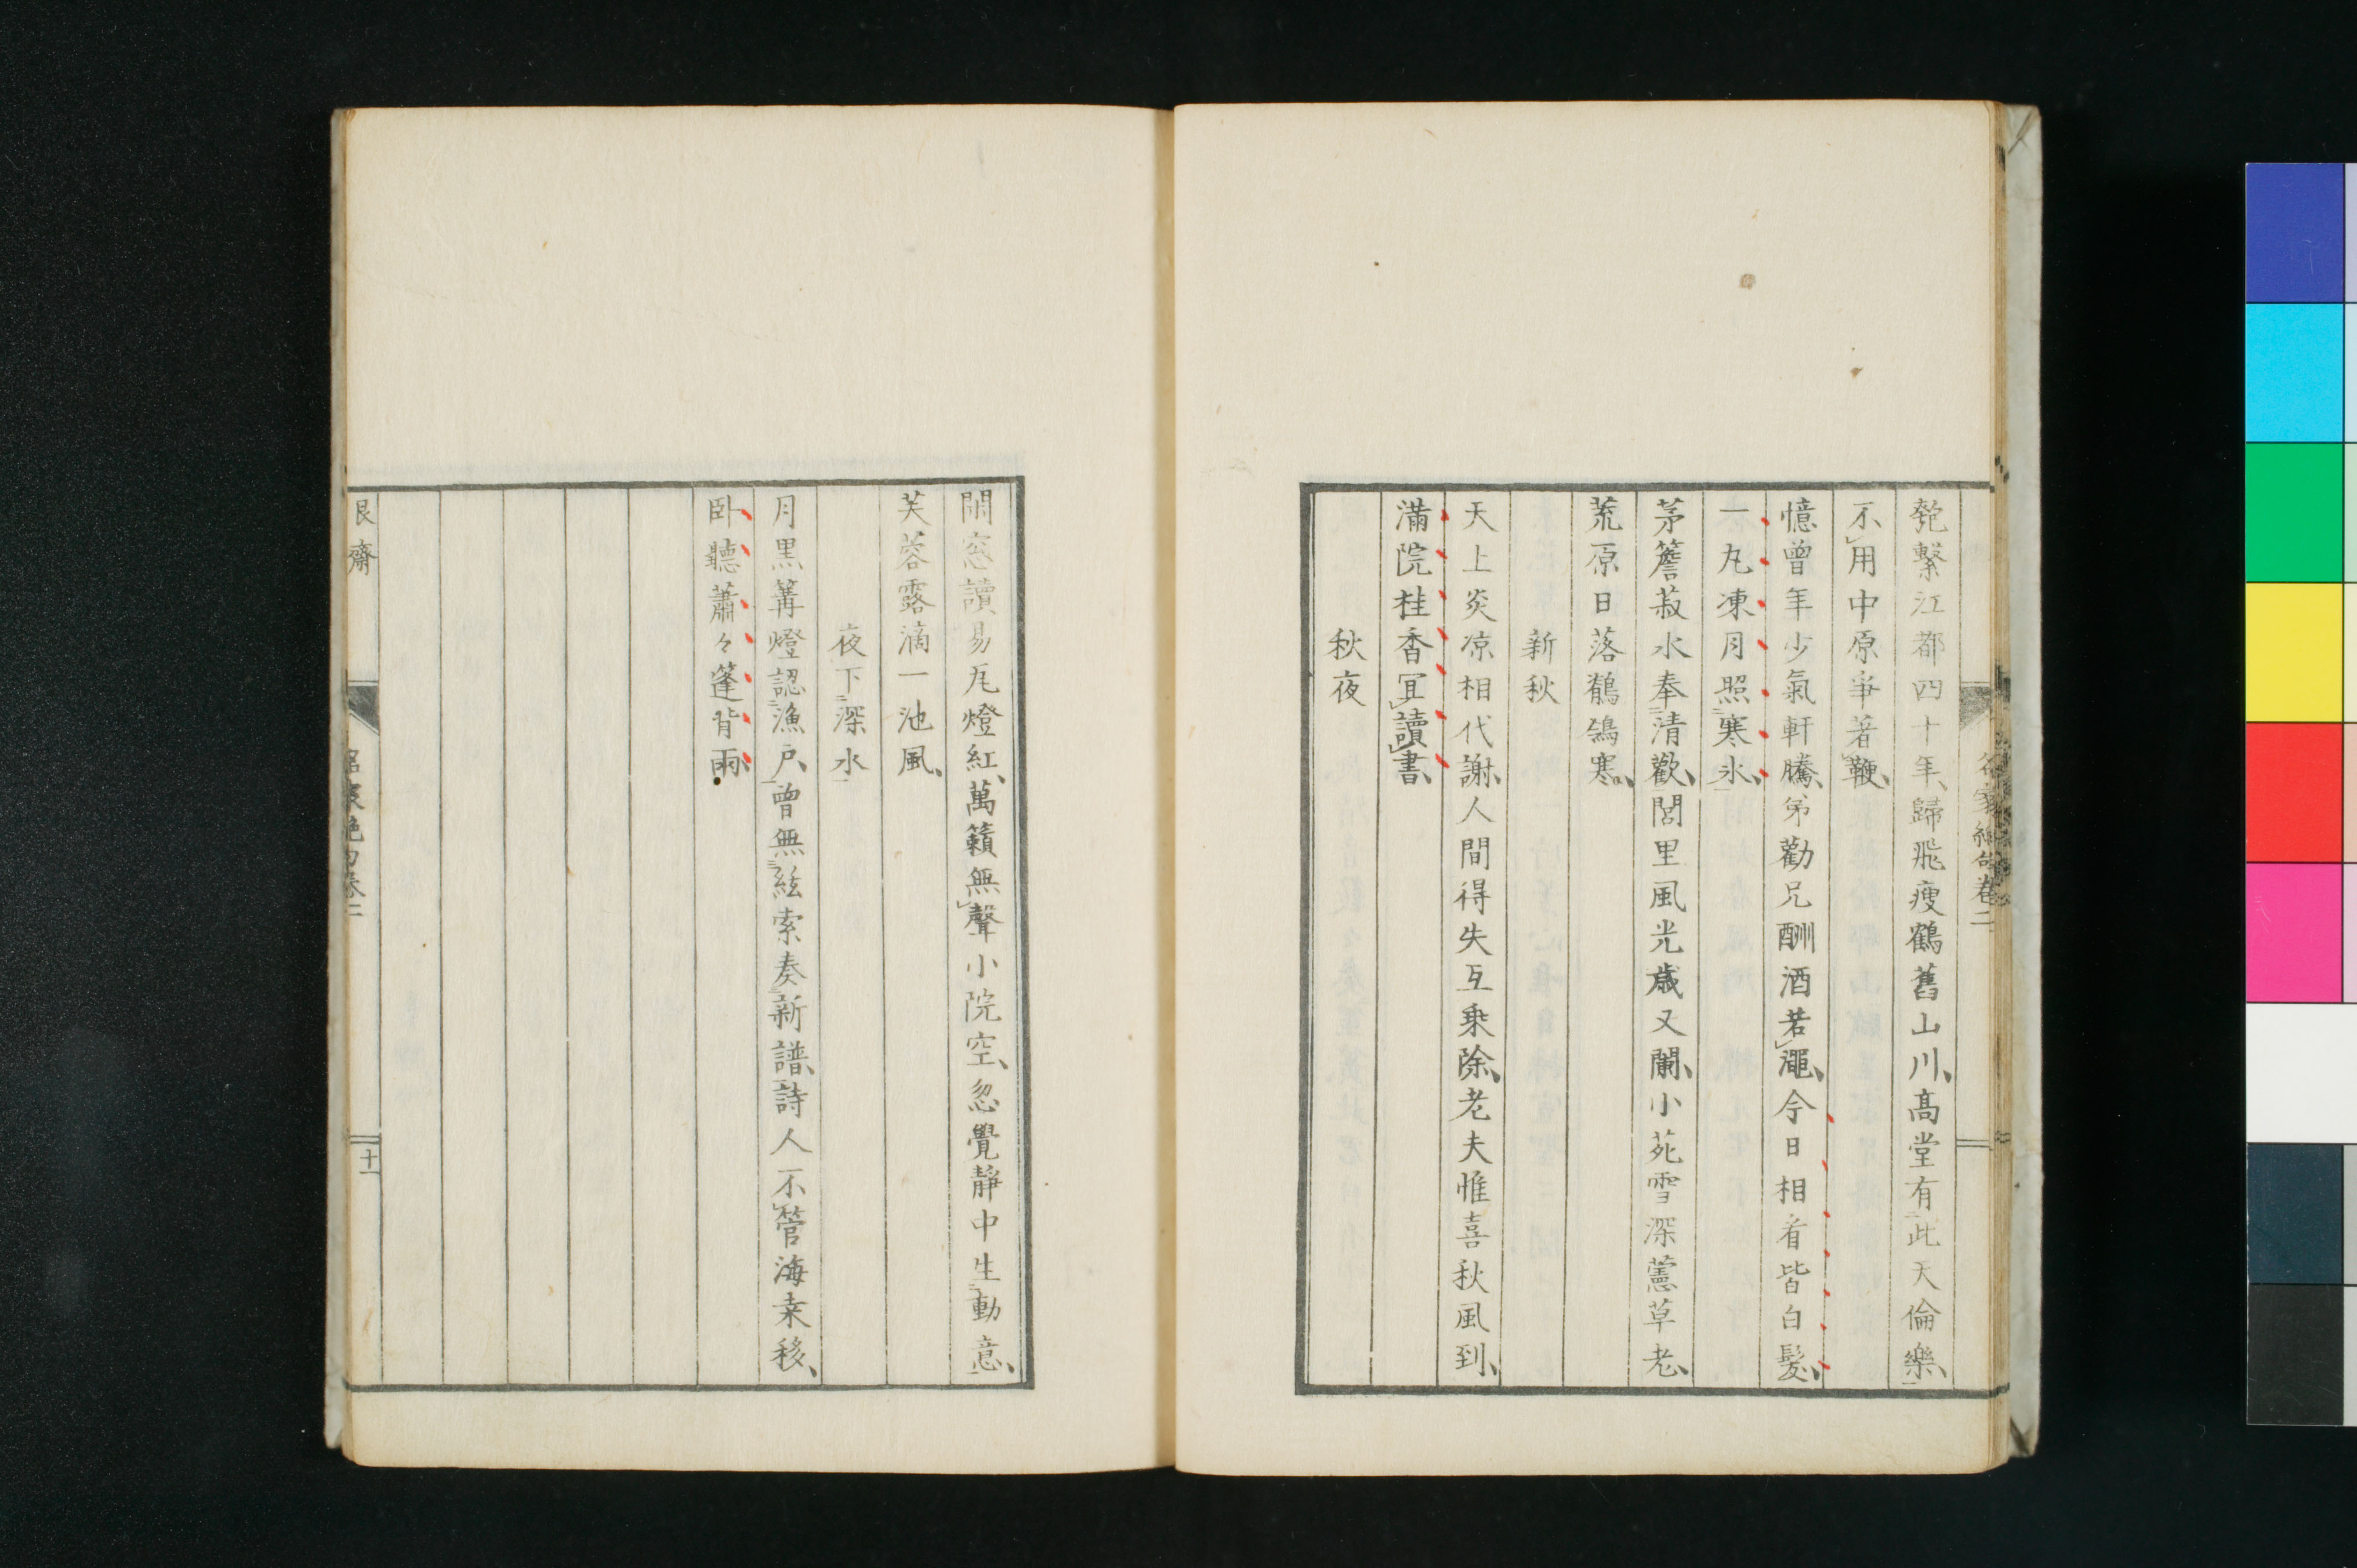 匏繫江都四十年、歸飛瘦鶴舊山川、高堂有此天倫樂、
不用中原爭著鞭、
憶曾年少氣軒騰、弟勸兄酬酒若澠、今日相看皆白髮、
一丸凍月照寒氷、
茅簷菽水奉清歡、閭里風光歲又闌、小苑雪深萱草老、
荒原日落鶺鴒寒、
新秋
天上炎凉相代謝、人間得失互乗除、老夫惟喜秋風到、
滿院桂香宜讀書、
秋夜
閑窓讀易瓦燈紅、萬籟無聲小院空、忽覺靜中生動意、
芙蓉露滴一池風、
夜下深水
月黒篝燈認漁戶、曾無絃索奏新譜、詩人不管海棄移、
臥聽蕭々篷背雨、
名家絶句卷二
艮齋
名家絶句卷二
十一